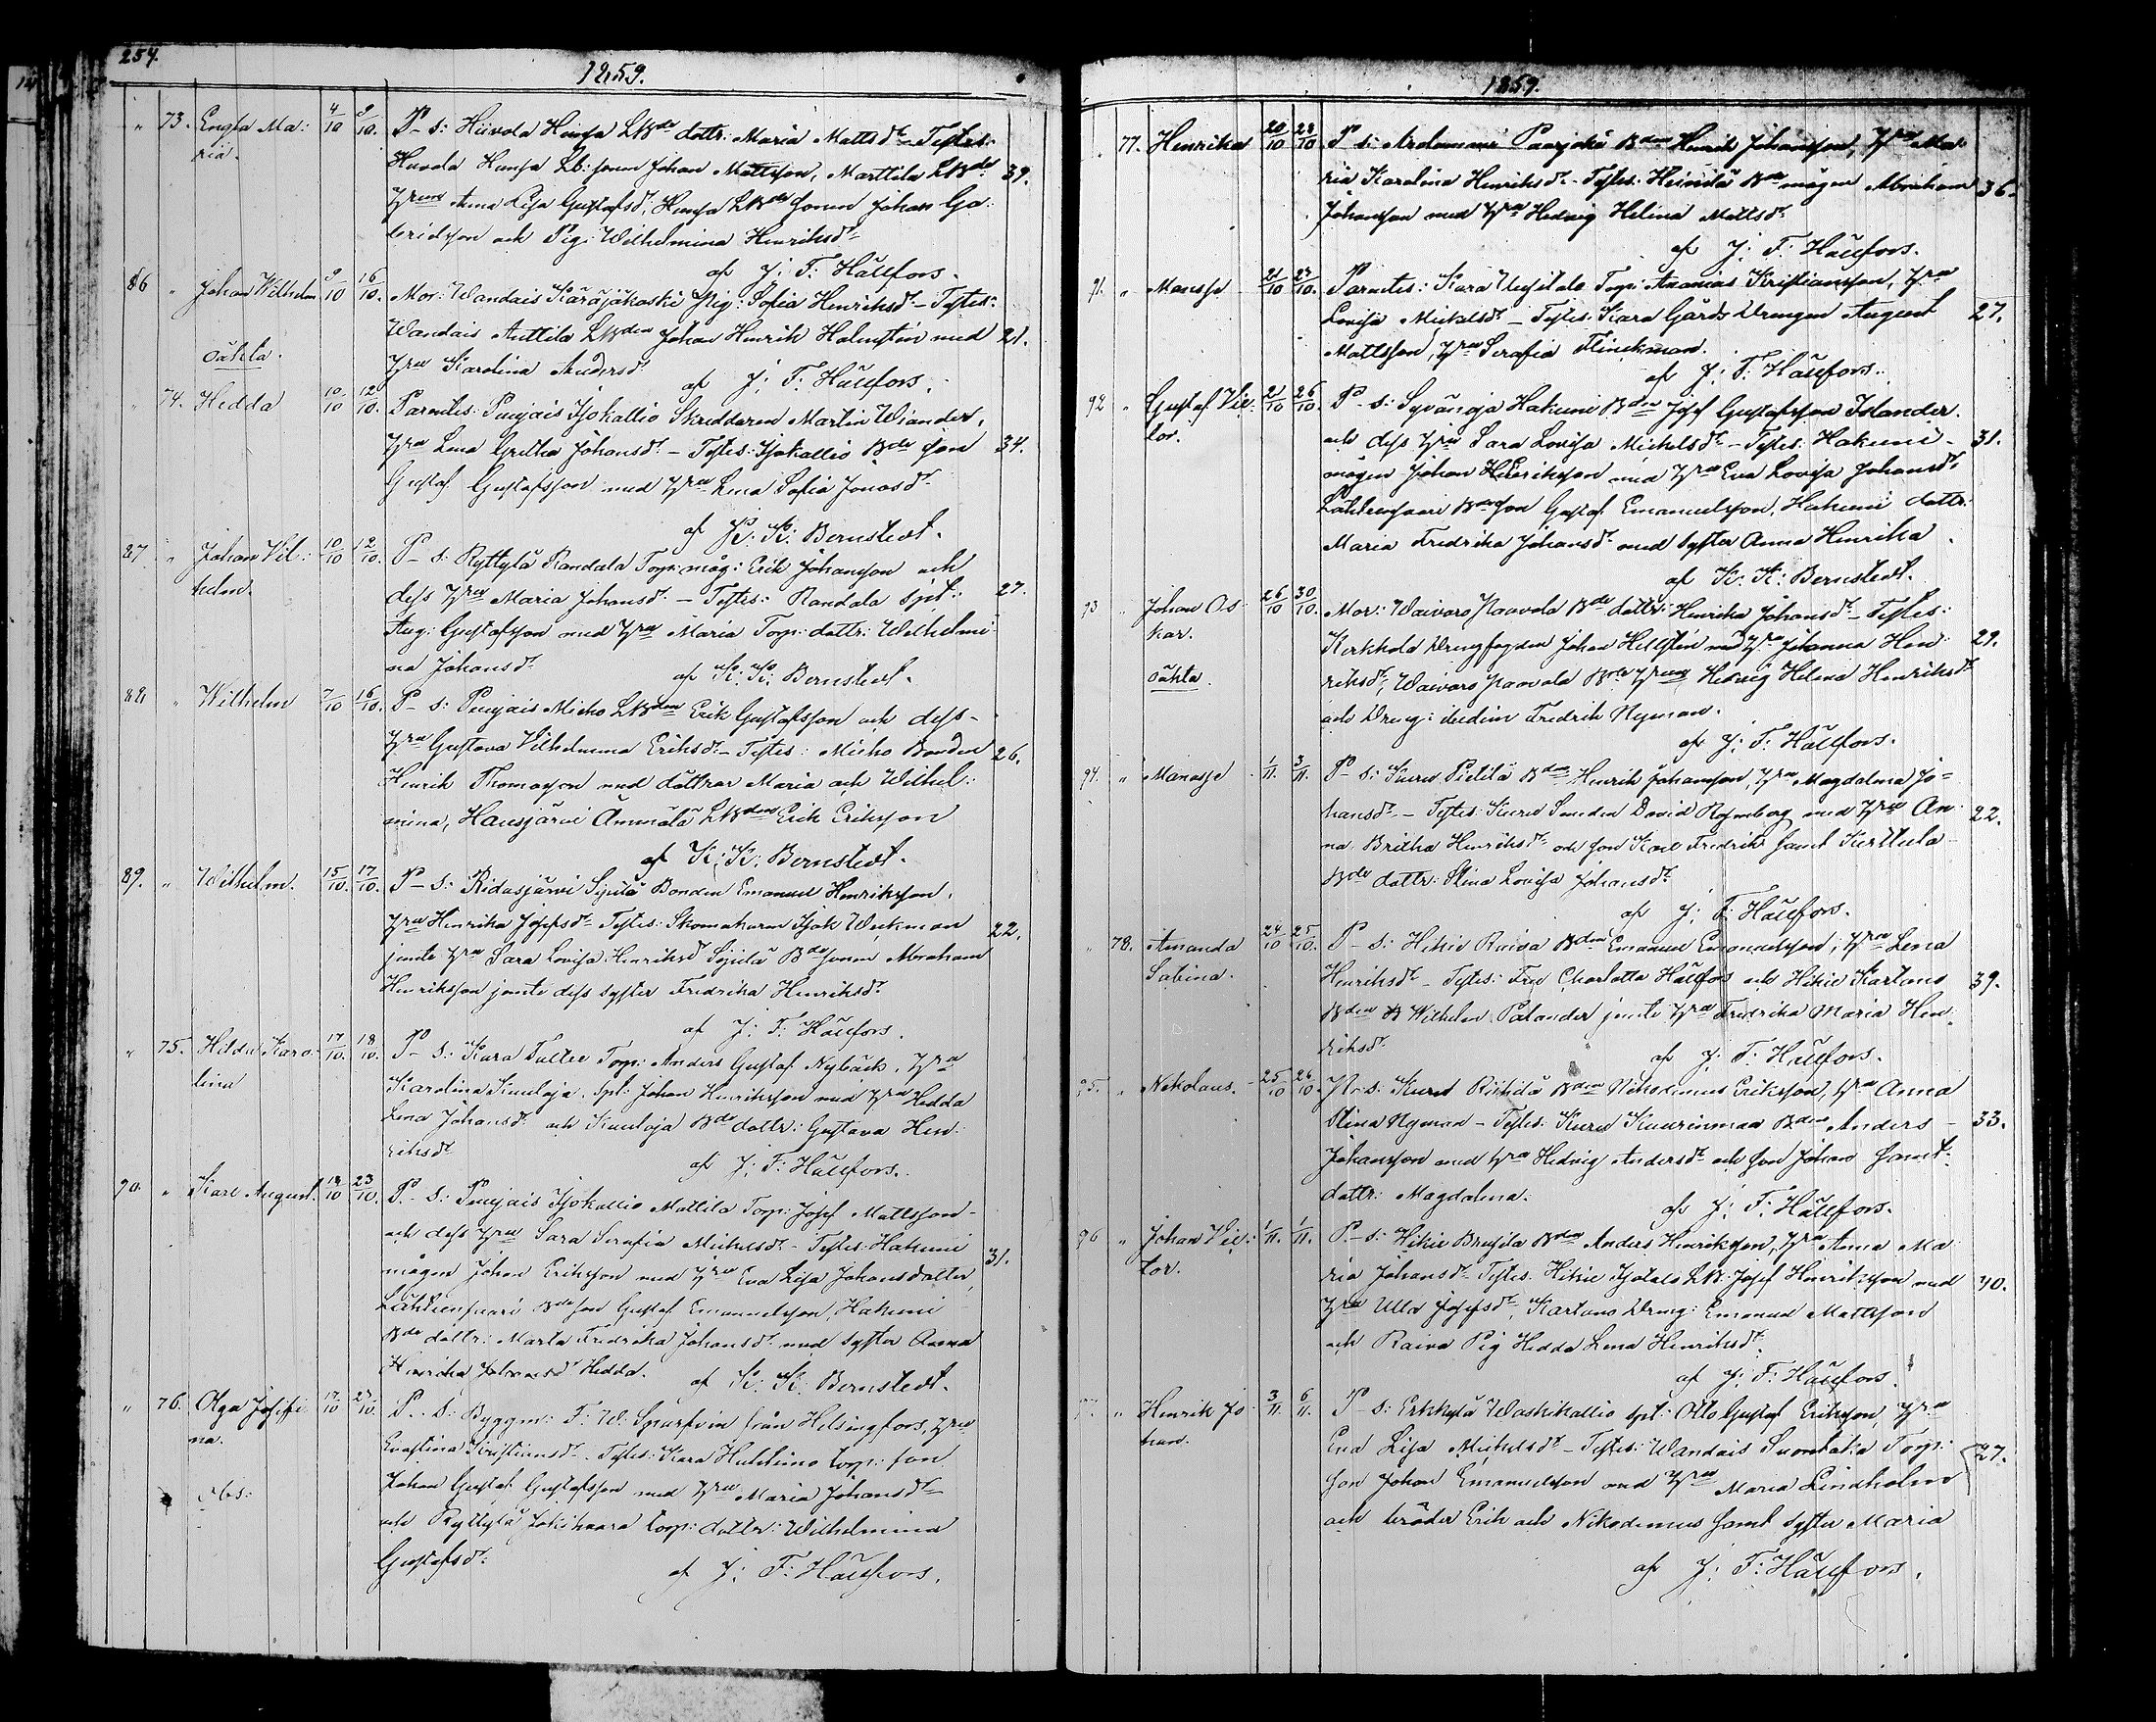 254.
1859.
" 73. Engla Ma: 4/10 9/10. P-s: Hiivola Hunsa LBde dottr: Maria Mattsdr - Testes:
ria. Huvola Hunsa Lb: sonen Johan Mattsson, Marttila LBde 39.
hru Anna Lisa Gustafsdr, Hunsa LBde sonen Johan Ga:
brielsson och Pig: Wilhelmina Henriksdr
af J: F: Hällfors.
86 " Johan Wilhelm 9/10 16/10. Mor: Wandais Käräjäkoski Pig: Sofia Henriksdr - Testes:
Wandais Anttila LBden Johan Henrik Holmsten med 21.
oäkta. hru Karolina Andersdr
af J: F: Hällfors.
" 74. Hedda 10/10 12/10. Parentes: Punjais Isokallio Skreddaren Martin Wiander,
hru Lena Gretha Johansdr - Testes: Isokallio Bde son 34.
Gustaf Gustafsson med hru Lena Sofia Jonasdr
af K: K: Bernstedt.
87. " Johan Vil: 10/10 12/10. P-s: Ryttylä Randala Torp: måg: Erik Johansson och
helm. dess hru Maria Johansdr - Testes: Randala spt: 27.
Aug: Gustafsson med hru Maria Torp: dottr: Wilhelmi
na Johansdr
af K: K: Bernstedt.
88 " Wilhelm 7/10 16/10. P-s: Punjais Micko LBden Erik Gustafsson och dess
hru Gustava Vilhelmina Eriksdr - Testes: Micko Bonden 26.
Henrik Thomasson med döttrar Maria och Wilhel:
mina, Hausjärvi Ämmälä LBden Erik Eriksson
af K: K: Bernstedt.
89. " Wilhelm. 15/10. 17/10. P-s: Ridasjärvi Sipilä Bonden Emanuel Henriksson,
hru Henrika Josefsdr Testes: Skomakaren Isak Weckman 22.
jemte hru Sara Lovisa Henriksd Sipilä Bde sonen Abraham
Henriksson jemte dess syster Fredrika Henriksdr
af J: F: Hällfors.
" 75. Hilda Karo: 17/10. 18/10. P-s: Kara Torp: Anders Gustaf Nybäck, hru
lina Karolina Kuuloja. Spt: Johan Henriksson med hru Hedda
Lena Johansdr och Kuuloja Bde dottr: Gustava Hen:
riksdr
af J: F: Hällfors.
90. " Karl August. 18/10 23/10. P-s: Punjais Isokallio Mattila Torp: Josef Mattsson
och dess hru Sara Serafia Michelsdr - Testes: Hakuni
mågen Johan Eriksson med hru Eva Lisa Johansdotter, 31.
Lähteensuari Bde son Gustaf Emanuelsson, Hakuni
Bde dottr: Marta Fredrika Johansdr med syster Anna
Henrika Johansdr Hedda.
af K: K: Bernstedt.
" 76. Olga Josefi: 17/10 27/10. P-s: Byggm: F: W: Sparfvin från Helsingfors, hru
na. Evastina Kristiansdr. Testes: Kara Huhtimo torp: son
Johan Gustaf Gustafsson med hru Maria Johansdr
Obs: och Ryttylä torp: dottr: Wilhelmina
Gustafsdr:
af J: F: Hällfors.
1859.
77. Henrika 20/10 23/10 P s: Arolammi Paarjoki Bden Henrik Johansson, hru Ma:
ria Karolina Henriksdr - Testes: Heinilä Bde mågen Abraham 36.
Johansson med hru Hedvig Helena Mattsdr
af J: F: Hällfors.
91. " Manasse 21/10 23/10. Parentes: Kara Uusitalo Torp: Ananias Kristiansson, hru
Lovisa Mickelsdr - Testes: Kara Gårds Drengen August 27.
Mattsson, hru Serafia Flinckman.
af J: F: Hällfors.
92 " Gustaf Vic: 21/10 26/10. P-s: Syvänoja Hakuni Bden Josef Gustafsson Islander
tor. och dess hru Sara Lovisa Michelsdr - Testes: Hakuni 31.
mågen Johan Eriksson med hru Eva Lovisa Johansdr
Lähteensuari Bde son Gustaf Emanuelsson, Hakuni dottr:
Maria Fredrika Johansdr med syster Anna Henrika
af K: K: Bernstedt.
93 " Johan Os: 26/10 30/10. Mor: Waivaro Paavola Bde dottr: Henrika Johansdr - Testes:
kar. Kerkkola Drengfogden Johan Hellsten med hru Johanna Hen: 29.
oäkta. riksdr, Waivaro Paavola Bde hru Hedvig Helena Henriksdr
och Dreng: ibidem Fredrik Nyman.
af J: F: Hällfors.
94. " Manasse 1/11. 3/11. P-s: Kuru Pietilä Bden Henrik Johansson, hru Magdalena Jo=
hansdr - Testes: Kuru Smeden David Rosenberg med hru An: 22.
na Britha Henriksdr och son Karl Fredrik samt Kerttula
Bde dottr: Stina Lovisa Johansdr
af J: F: Hällfors.
" 78. Amanda 24/10 25/10. P-s: Hikiä Raiva Bden Emanuel Emanuelsson, hru Lena
Sabina. Henriksdr - Testes: Fru Charlotta Hällfors och Hikiä Kartano 39.
Bden Wilhelm Palander jemte hru Fredrika Maria Hen:
riksdr
af J: F: Hällfors.
95. " Nikolaus. 25/10 26/10. P-s: Kuru Riihilä Bden Nikodemus Eriksson, hru Anna
Stina Nyman - Testes: Kuru Kuurinmaa Bden Anders 33.
Johansson med hru Hedvig Andersdr och son Johan samt
dottr: Magdalena.
af J: F: Hällfors.
96 " Johan Vic: 1/11. 1/11. P-s: Hikiä Brusila Bden Anders Henriksson, hru Anna Ma
tor. ria Johansdr Testes: Hikiä Isotalo LB: Josef Henriksson med 40.
hru Ulla Josefsdr, Kartano Dreng: Emanuel Mattsson
och Raiva Pig Hedda Lena Henriksdr.
af J: F: Hällfors.
" Henrik Jo: 3/11. 6/11. P-s: Erkkylä Waskikallio spt: Otto Gustaf Eriksson, hru
han. Eva Lisa Michelsdr - Testes: Wandais Suontaka Torp:
son Johan Emanuelsson med hru Maria Lindholm 27.
och bröder Erik och Nikodemus samt syster Maria
af J: F: Hällfors.